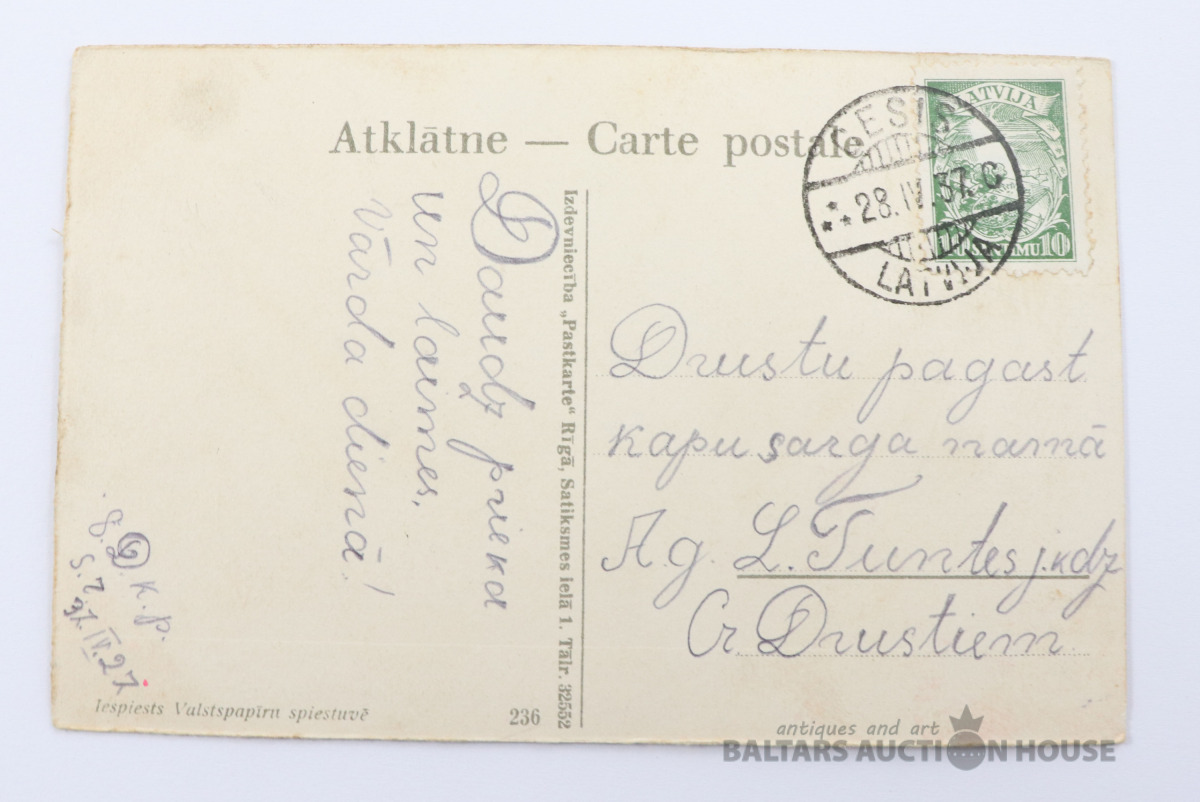 Atklātne — Carte postale
LATVIJA
10 SANTIMU 10
CESIS
28.IV.37. C
LATVIJA
Daudz prieka
un laimes,
Vārda dienā!
Izdevniecība „Pastkarte“ Rīgā, Satiksmes ielā 1. Tālr. 32552
Drustu pagast
kapu sarga namā
Ag. L. Tuntes j.kdz
Cr. Drustiem.
K. P.
37. IV. 27
Iespiests Valstspapīru spiestuvē
236
antiques and art
BALTARS AUCTION HOUSE